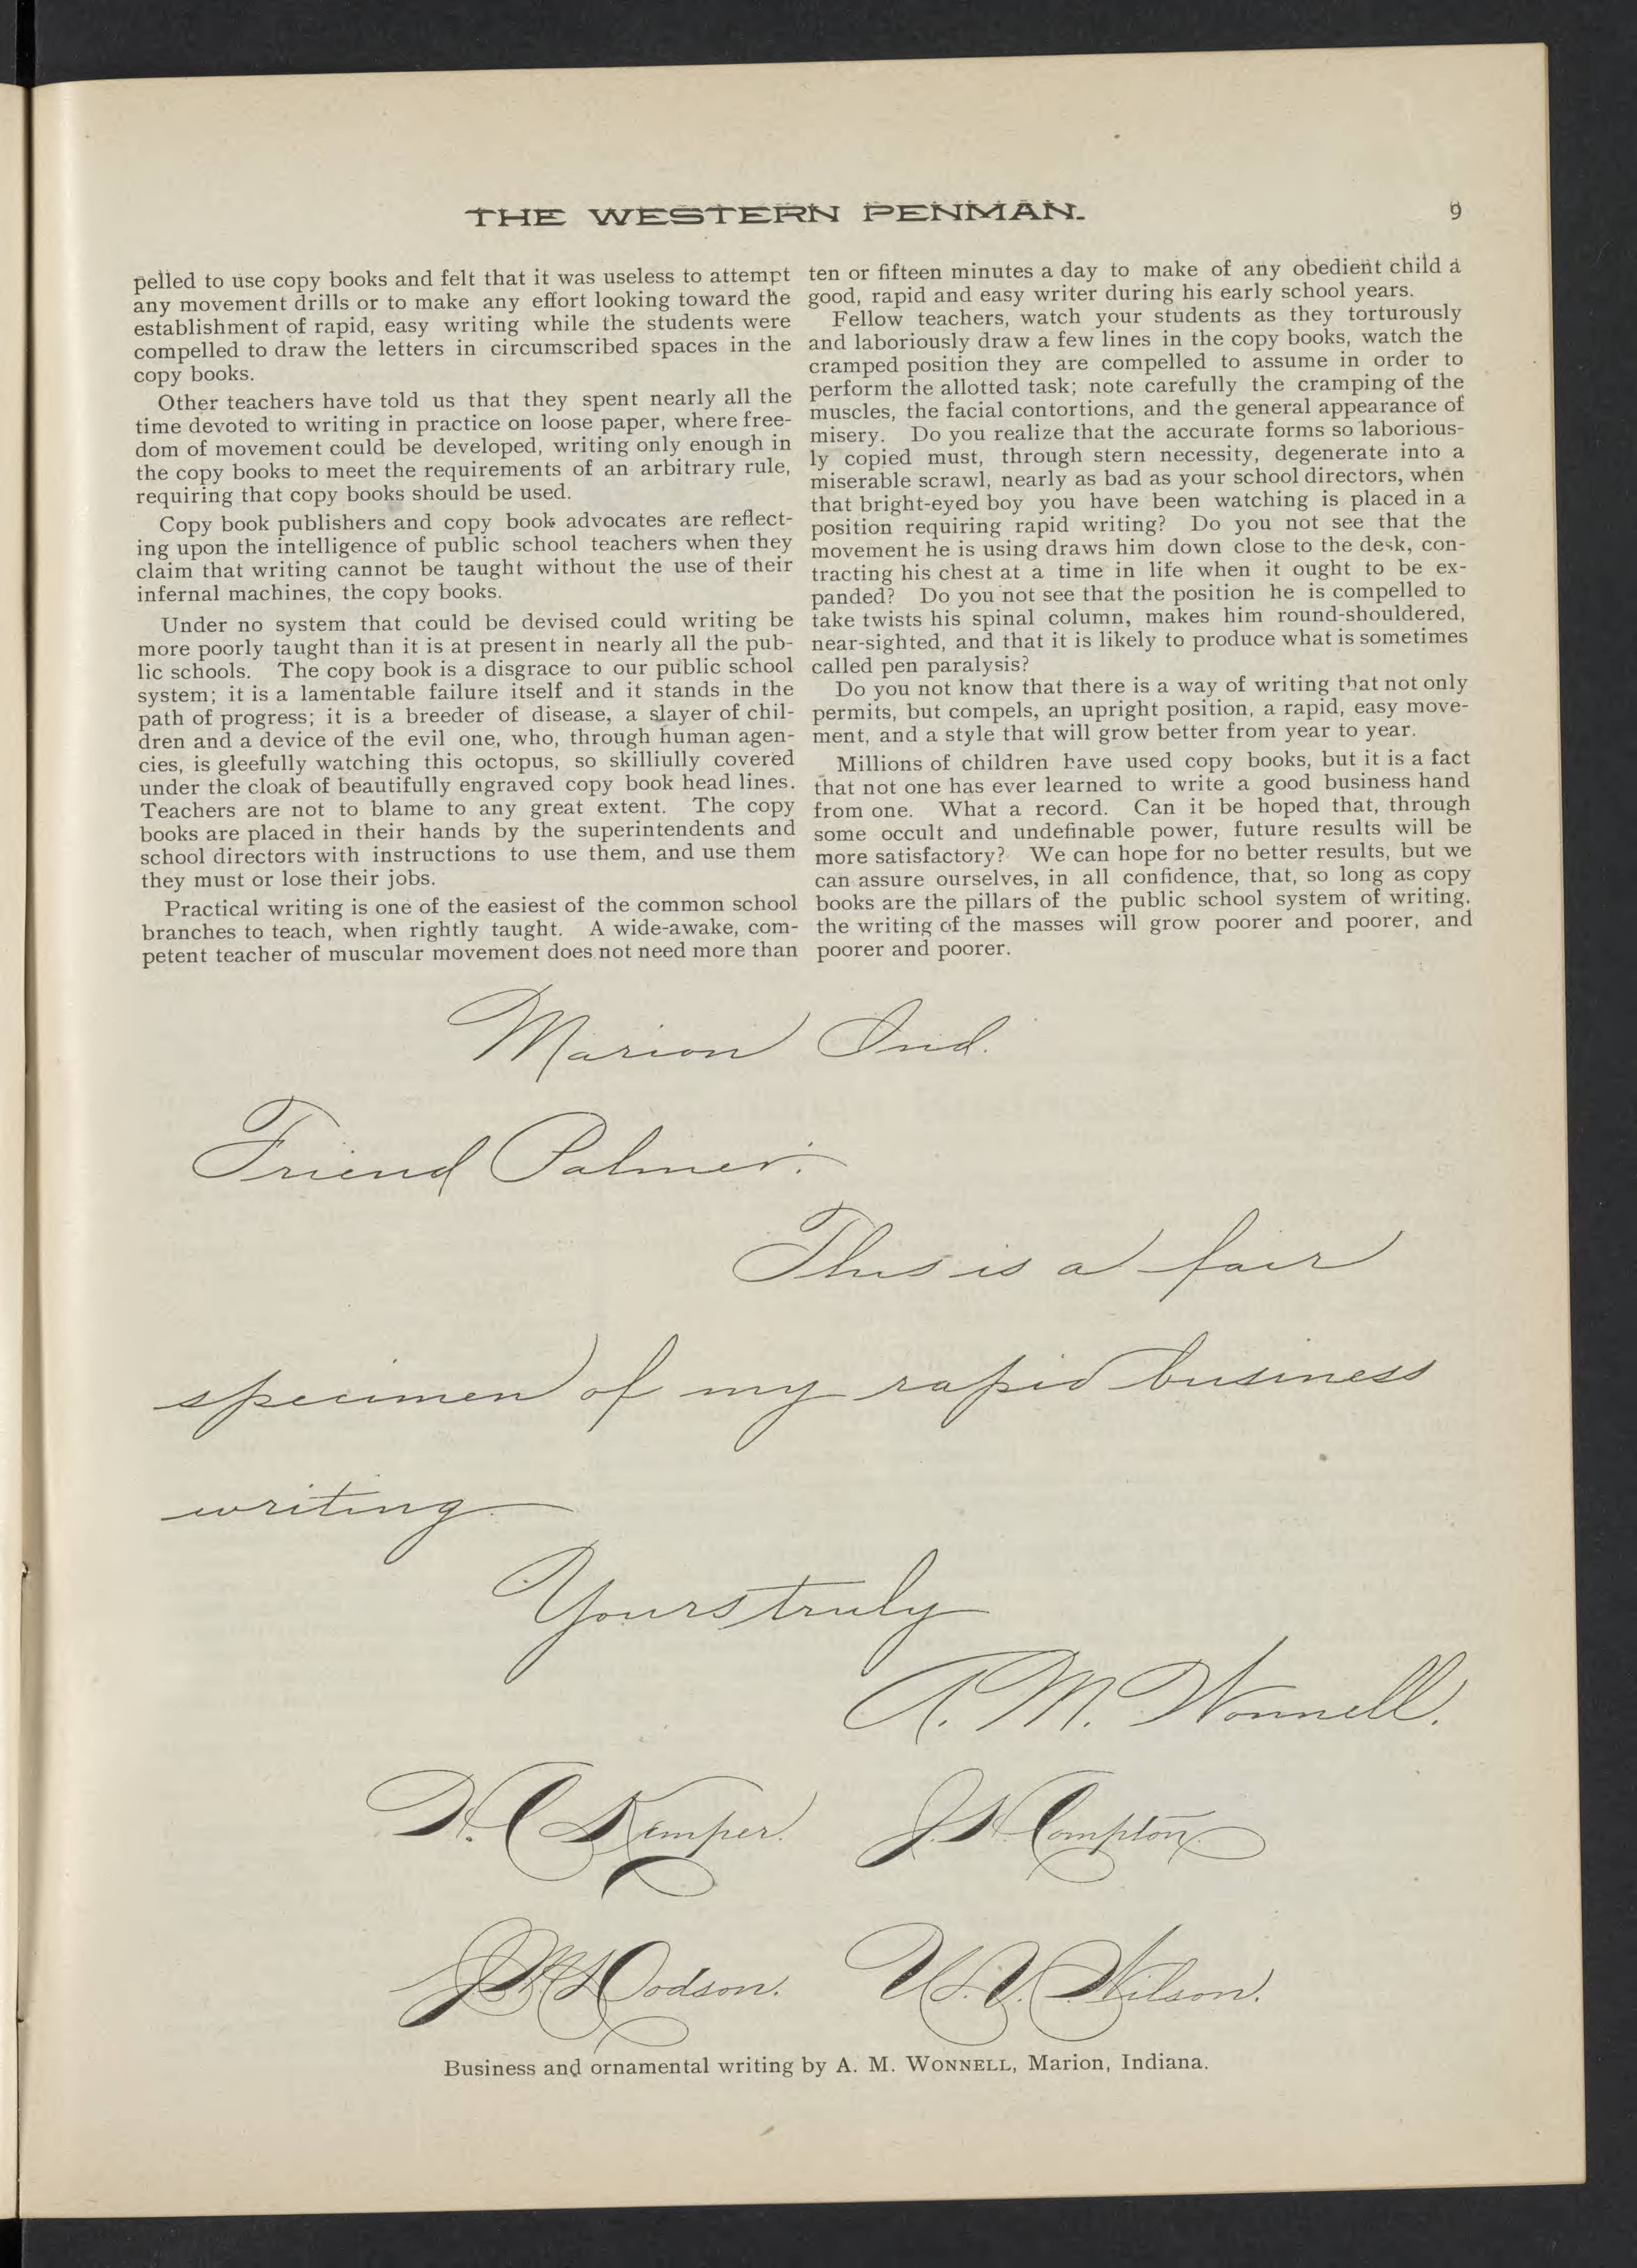 THE WESTERN PENMAN.
9
pelled to use copy books and felt that it was useless to attempt
any movement drills or to make any effort looking toward the
establishment of rapid, easy writing while the students were
compelled to draw the letters in circumscribed spaces in the
copy books.
Other teachers have told us that they spent nearly all the
time devoted to writing in practice on loose paper, where free-
dom of movement could be developed, writing only enough in
the copy books to meet the requirements of an arbitrary rule,
requiring that copy books should be used.
Copy book publishers and copy book advocates are reflect-
ing upon the intelligence of public school teachers when they
claim that writing cannot be taught without the use of their
infernal machines, the copy books.
Under no system that could be devised could writing be
more poorly taught than it is at present in nearly all the pub-
lic schools. The copy book is a disgrace to our public school
system; it is a lamentable failure itself and it stands in the
path of progress; it is a breeder of disease, a slayer of chil-
dren and a device of the evil one, who, through human agen-
cies, is gleefully watching this octopus, so skilliully covered
under the cloak of beautifully engraved copy book head lines.
Teachers are not to blame to any great extent. The copy
books are placed in their hands by the superintendents and
school directors with instructions to use them, and use them
they must or lose their jobs.
Practical writing is one of the easiest of the common school
branches to teach, when rightly taught. A wide-awake, com-
petent teacher of muscular movement does not need more than
ten or fifteen minutes a day to make of any obedient child a
good, rapid and easy writer during his early school years.
Fellow teachers, watch your students as they torturously
and laboriously draw a few lines in the copy books, watch the
cramped position they are compelled to assume in order to
perform the allotted task; note carefully the cramping of the
muscles, the facial contortions, and the general appearance of
misery. Do you realize that the accurate forms so laborious-
ly copied must, through stern necessity, degenerate into a
miserable scrawl, nearly as bad as your school directors, when
that bright-eyed boy you have been watching is placed in a
position requiring rapid writing? Do you not see that the
movement he is using draws him down close to the desk, con-
tracting his chest at a time in life when it ought to be ex-
panded? Do you not see that the position he is compelled to
take twists his spinal column, makes him round-shouldered,
near-sighted, and that it is likely to produce what is sometimes
called pen paralysis?
Do you not know that there is a way of writing that not only
permits, but compels, an upright position, a rapid, easy move-
ment, and a style that will grow better from year to year.
Millions of children have used copy books, but it is a fact
that not one has ever learned to write a good business hand
from one. What a record. Can it be hoped that, through
some occult and undefinable power, future results will be
more satisfactory? We can hope for no better results, but we
can assure ourselves, in all confidence, that, so long as copy
books are the pillars of the public school system of writing,
the writing of the masses will grow poorer and poorer, and
poorer and poorer.
Marion Ind.
Friend Palmer:
This is a fair
specimen of my rapid business
writing.
Yours truly
A. M. Wonnell.
H. C. Kemper. J. H. Compton.
J. M. Hodson. W. V. Wilson.
Business and ornamental writing by A. M. WONNELL, Marion, Indiana.